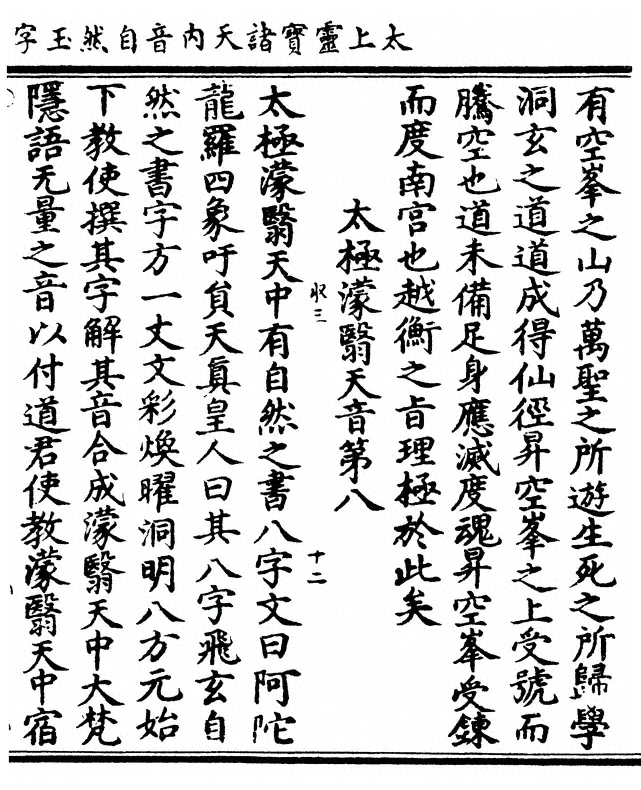 太上靈寶諸天內音自然玉字
有空峯之山乃萬聖之所遊生死之所歸學
洞玄之道道成得仙徑昇空峯之上受號而
騰空也道未備足身應滅度魂昇空峯受鍊
而度南宮也越衡之旨理極於此矣
太極濛翳天音第八
太極濛翳天中有自然之書八字文曰阿陀
龍羅四象吁員天真皇人曰其八字飛玄自
然之書字方一丈文彩煥曜洞明八方元始
下教使撰其字解其音合成濛翳天中大梵
隱語无量之音以付道君使教濛翳天中宿
十二